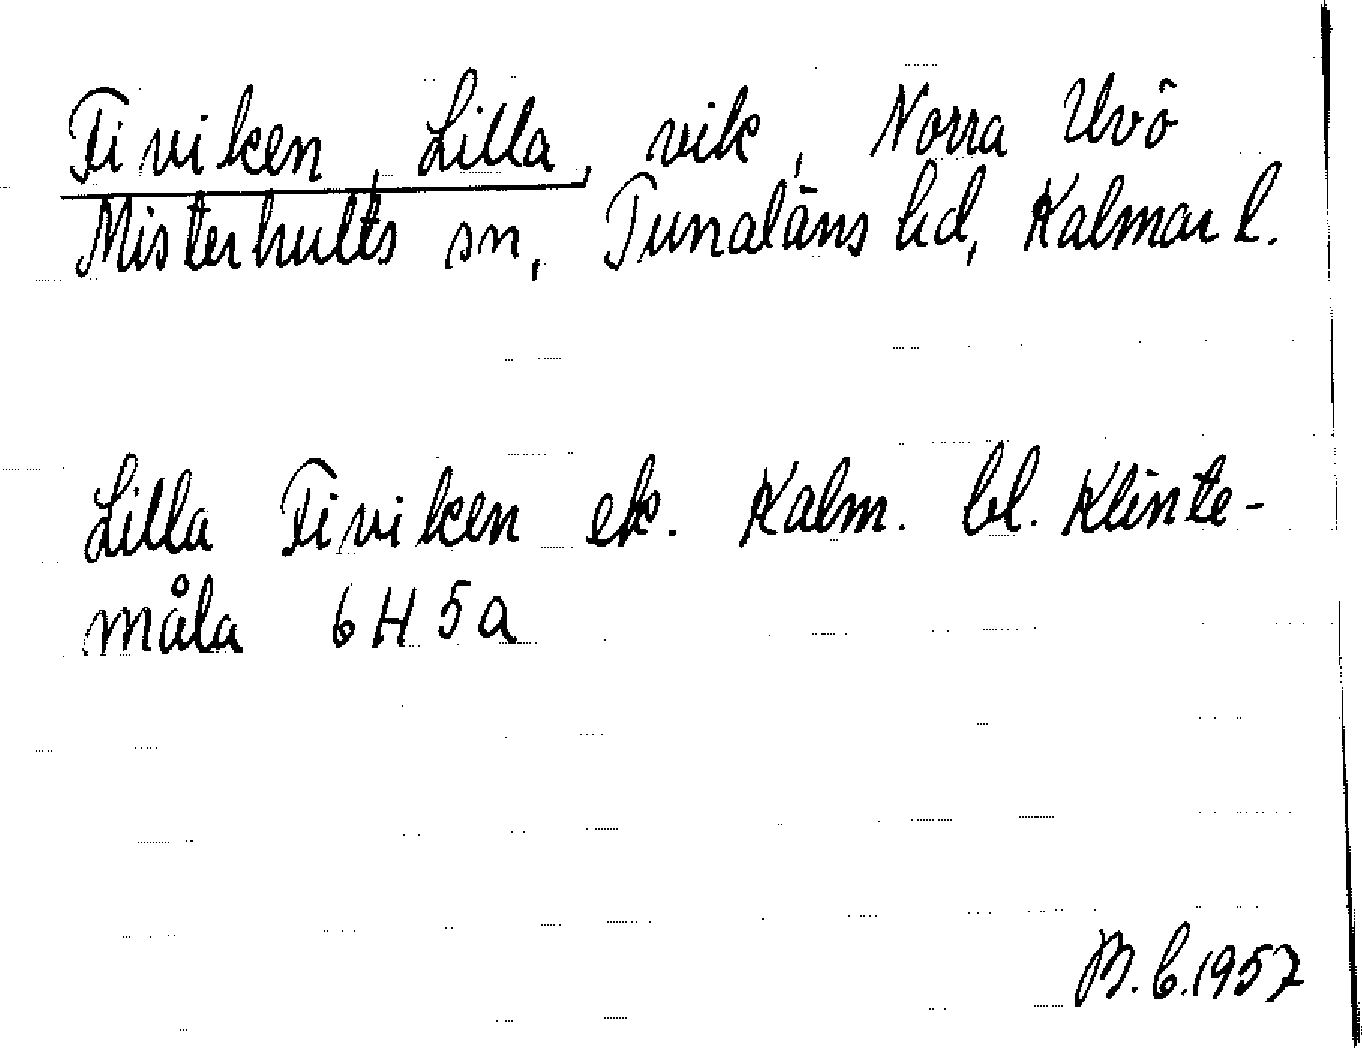 Tiviken, Lilla, vik, Norra Uvö
Misterhults sn, Tunaläns hd, Kalmar l.
Lilla Tiviken ek. Kalm. bl. Klinte-
måla 6H5a
B.C.1957